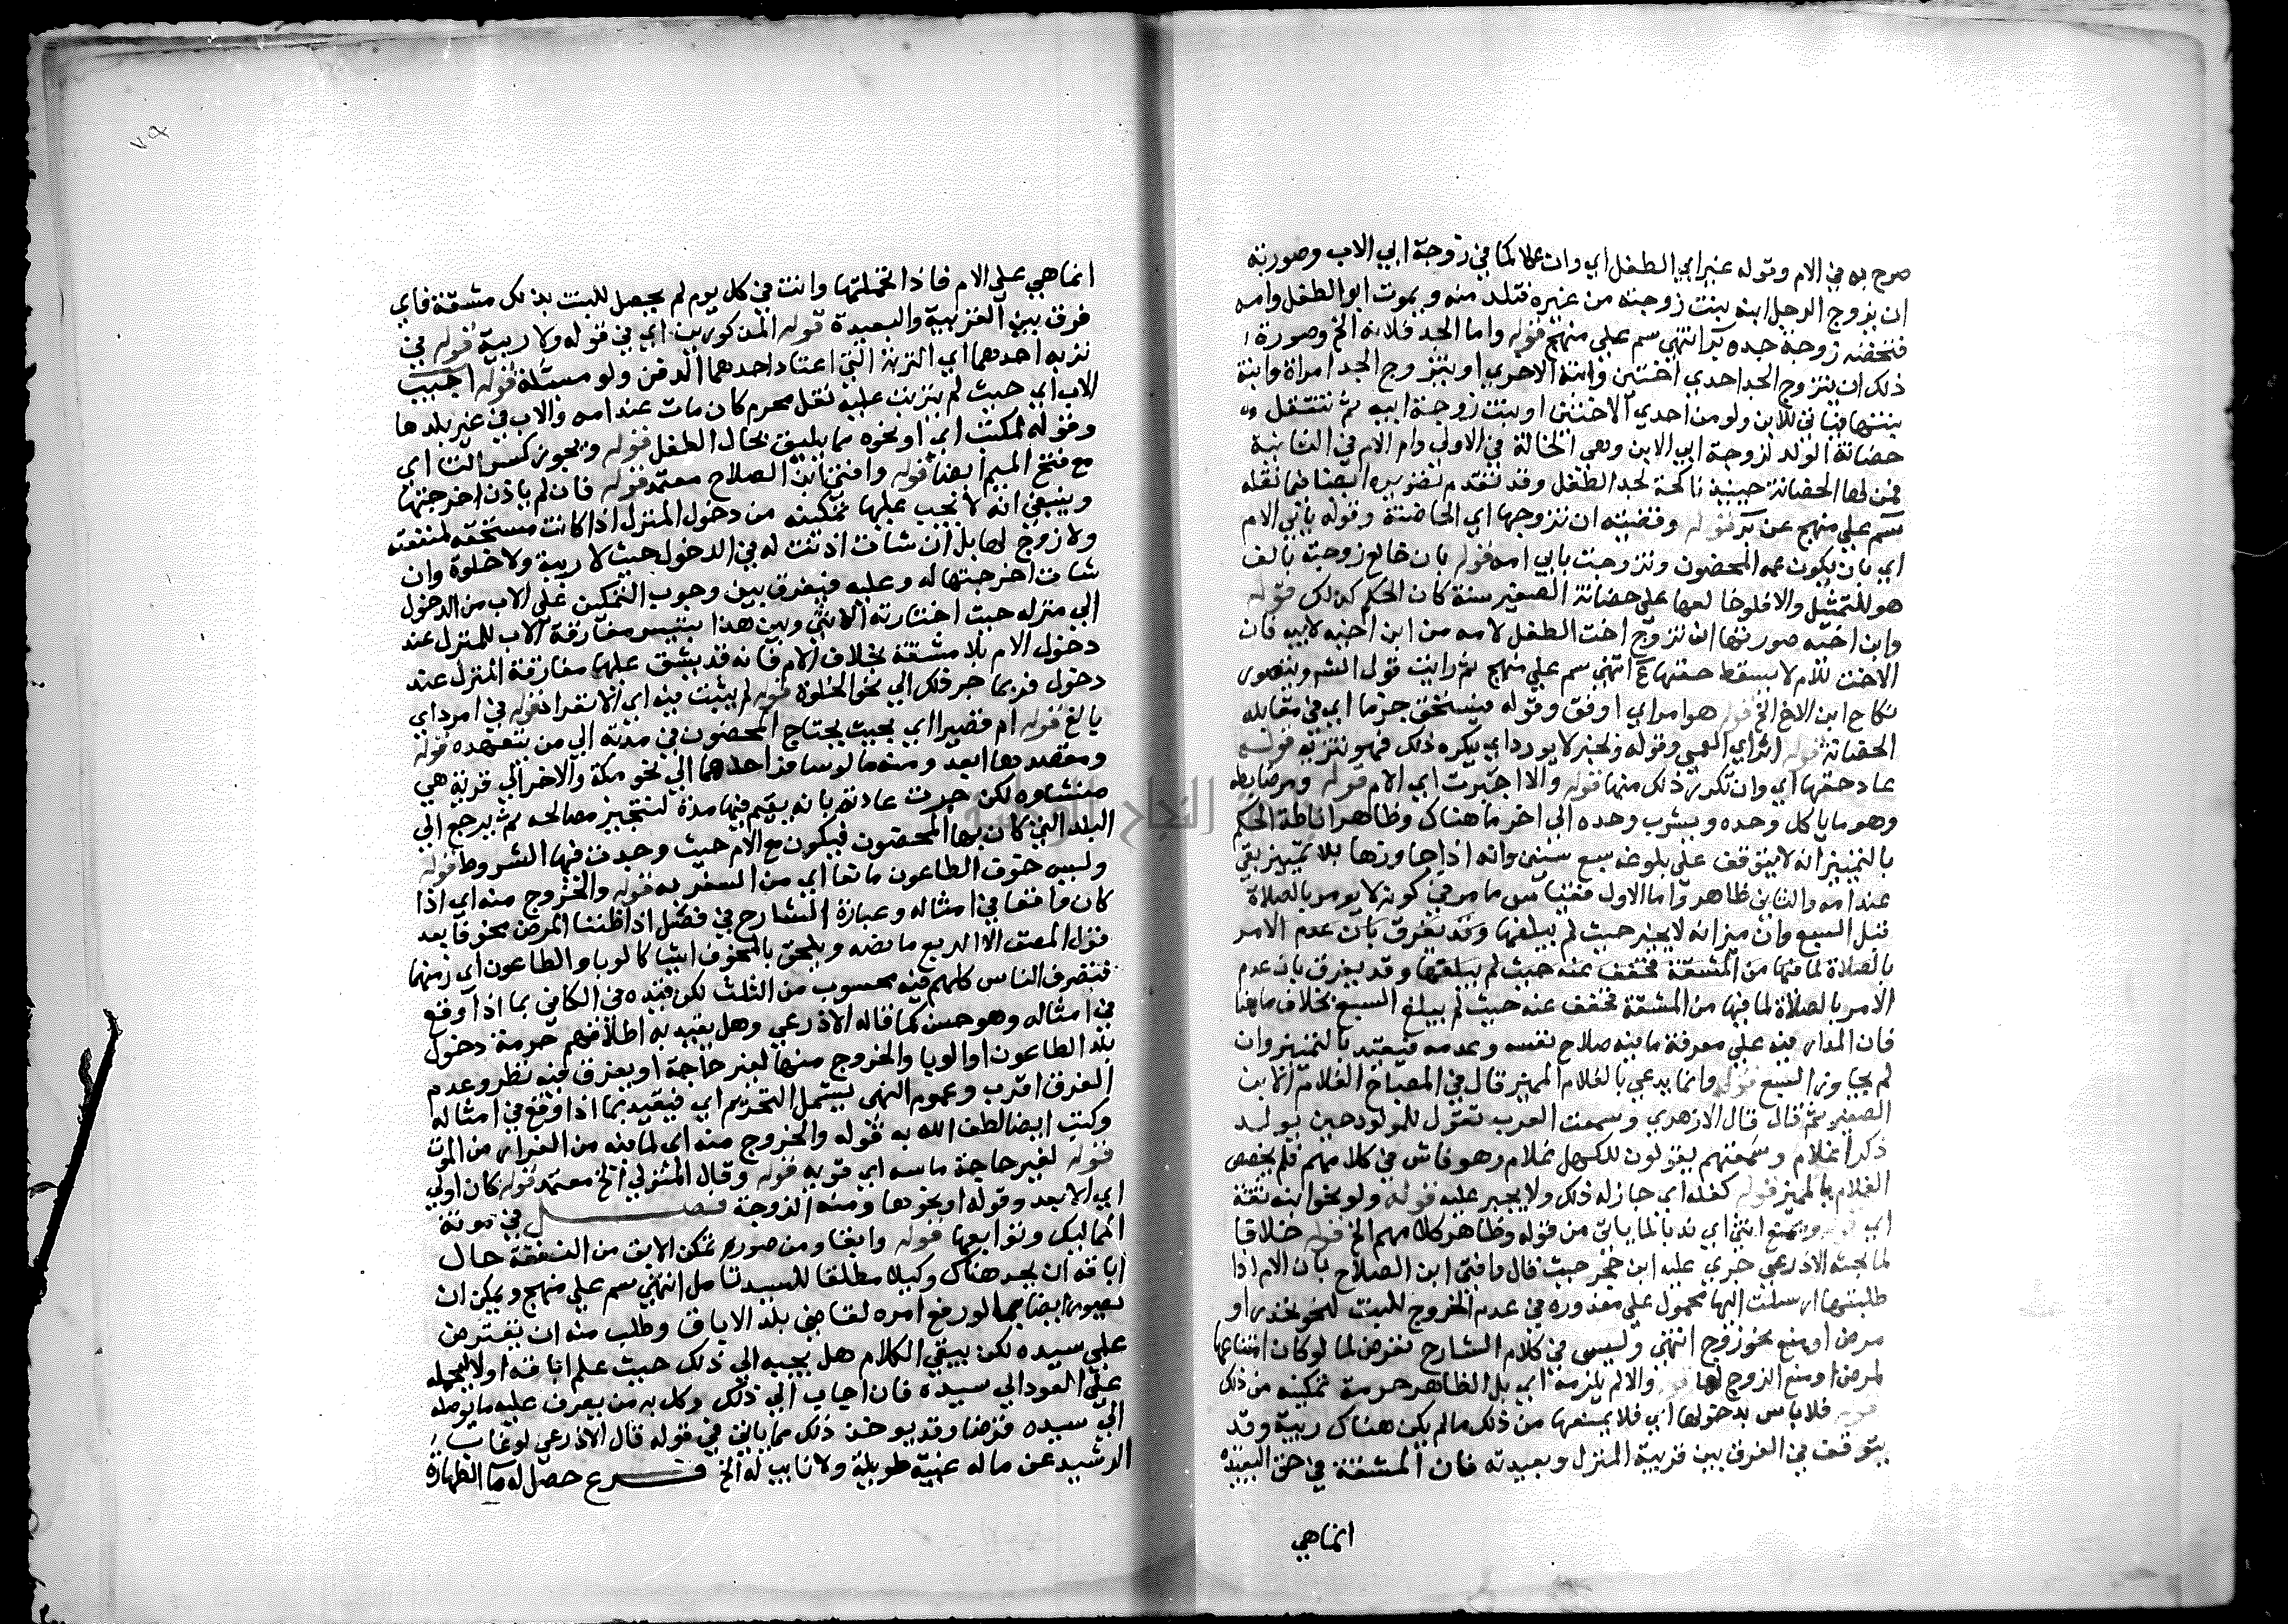 صرح به في الام وقوله غير ابي الطفل اي وان علا كما في زوجة ابي الاب وصورته
ان يزوج الرجل ابنه بنت زوجته من غيره فتلد منه ويموت ابو الطفل وامه
فتحضنه زوجة جده بر انتهى سم على منهج قوله واما الجد فلانه الخ وصورة
ذلك ان يتزوج الجد احدي اختين وابنه الاخري او يتزوج الجد امراة وابنة
بنتها فياتي للابن ولد من احدي الاختين او بنت زوجة ابيه ثم تنتقل
حضانة الولد لزوجة ابي الابن وهي الخالة في الاولى وام الام في الثانية
فمن لها الحضانة حينيذ ناكحة لجد الطفل وقد تقدم تصويره ايضا فيما نقله
سم على منهج عن بر قوله وقضيته ان تزوجها اي الحاضنة وقوله بابي الام
اي بان يكون عمه المحضون وتزوجت بابي امه قوله بان خالع زوجته بالف
هو للتمثيل والا فلو خالعها على حضانة الصغير سنة كان الحكم كذلك قوله
وابن اخيه صورتها ان تتزوج اخت الطفل لامه من ابن اخيه لابيه فان
الاخت للام لا يسقط حقها انتهى سم على منهج ثم رايت قول الشر ويتصور
نكاح ابن الاخ الخ قوله هو امراي اوفق وقوله فيستحق جزما اي في مقابله
الحضانة قوله اثر اي العمى وقوله ولخبر لا يورد اي يكره ذلك فهو تنزيه قوله
عاد حقها اي وان تكرر ذلك منها قوله والا اجبرت اي الام قوله ومر ضابطه
وهو ما ياكل وحده ويشرب وحده الى اخر ما هناك وظاهر اناطة الحكم
بالتمييز انه لا يتوقف على بلوغه سبع سنين وانه اذا جاوزها بلا تمييز بقي
عند امه والثاني ظاهر واما الاول فقياس ما مر في كونه لا يومر بالصلاة
قبل السبع وان ميز انه لا يخير حيث لم يبلغها وقد يفرق بان عدم الامر
بالصلاة لما فيها من المشقة فخفف عنه حيث لم يبلغها وقد يفرق بان عدم
الامر بالصلاة لما فيها من المشقة فخفف عنه حيث لم يبلغ السبع بخلاف ما هنا
فان المدار فيه على معرفة ما فيه صلاح نفسه وعدمه فيقيد بالتمييز وان
لم يجاوز السبع قوله وانما يدعى بالغلام المميز قال في المصباح الغلام الابن
الصغير ثم قال قال الازهري وسمعت العرب تقول للمولود حين يولد
ذكرا غلام وسمعتهم يقولون للكهل غلام وهو فاش في كلامهم فلم يخص
الغلام بالمميز قوله كفله اي جاز له ذلك ولا يجبر عليه قوله ولو نحو ابنه ثقة
اي قوله ويمنع انثى اي ندبا لما ياتي من قوله وظاهر كلامهم الخ قوله خلافا
لما بحثه الاذرعي جري عليه ابن حجر حيث قال وافتى ابن الصلاح بان الام اذا
طلبتها ارسلت اليها محمول على معذورة في عدم الخروج للبنت لنحو تخدر او
مرض او منع نحو زوج انتهى وليس في كلام الشارح تعرض لما لو كان امتناعها
لمرض او منع الزوج لها قوله والا لم يلزمه اي بل الظاهر حرمة تمكينه من ذلك
قوله فلا باس بدخولها اي فلا يمنعها من ذلك ما لم يكن هناك ريبة وقد
يتوقف في الفرق بين قريبة المنزل وبعيدته فان المشقة في حق البعيدة
انما هي
٧٩
انما هي على الام فاذا تحملتها واتت في كل يوم لم يحصل للبنت بذلك مشقة فاي
فرق بين القريبة والبعيدة قوله المذكورين اي في قوله ولا ريبة قوله في
تربة احدهما اي التربة التي اعتاد احدهما الدفن ولو مسبلة قوله اجيب
الاب اي حيث لم يترتب عليه نقل محرم كان مات عند امه والاب في غير بلدها
وقوله لمكتب اي او نحوه مما يليق بحال الطفل قوله ويجوز كسر التا اي
مع فتح الميم ايضا قوله وافتى ابن الصلاح معتمد قوله فان لم ياذن اخرجتها
وينبغي انه لا يجب عليها تمكينه من دخول المنزل اذا كانت مستحقة لمنفعته
ولا زوج لها بل ان شات اذنت له في الدخول حيث لا ريبة ولا خلوة وان
شات اخرجتها له وعليه فيفرق بين وجوب التمكين على الاب من الدخول
الى منزله حيث اختارته الانثى وبين هذا بتيسر مفارقة الاب للمنزل عند
دخول الام بلا مشقة بخلاف الام فانه قد يشق عليها مفارقة المنزل عند
دخول فربما جر ذلك الى نحو الخلوة قوله لم يثبت بينه اي الا بقر اذ قوله في امرد اي
بالغ قوله ام قصيرا اي بحيث يحتاج المحضون في مدته الى من يتعهده قوله
ومقصدها ابعد ومنه ما لو سافر احدهما الى نحو مكة والاخر الى قرية هي
منشاوه لكن جرت عادته بانه يقيم فيها مدة لتنجيز مصالحه ثم يرجع الى
البلد التي كان بها المحضون فيكون مع الام حيث وجدت فيها الشروط قوله
وليس خوف الطاعون مانعا اي من السفر به قوله والخروج منه اي اذا
كان واقعا في امثاله وعبارة الشارح في فصل اذا ظننا المرض مخوفا بعد
قول المصنف الا الربع ما نصه ويلحق بالمخوف اشيا كالوبا والطاعون اي زمنها
فتصرف الناس كلهم فيه محسوب من الثلث لكن قيده في الكافي بما اذا وقع
في امثاله وهو حسن كما قاله الاذرعي وهل يقيد به اطلاقهم حرمة دخول
بلد الطاعون او الوبا والخروج منها لغير حاجة او يفرق فيه نظر وعدم
الفرق اقرب وعموم النهي يشمل التحريم اي فيقيد بما اذا وقع في امثاله
وكتب ايضا لطف الله به قوله والخروج منه اي لما فيه من الفرار من الموت
قوله لغير حاجة ماسه اي قويه قوله وقال المتولي الخ معتمد قوله كان اولى
اي الابعد وقوله او نحوها ومنه الزوجة فصل في مونة
المماليك وتوابعها قوله وابقا ومن صور تمكن الابق من النفقة حال
اباقه ان يجد هناك وكيلا مطلقا للسيد تامل انتهى سم على منهج ويمكن ان
تصور ايضا بما لو رفع امره لقاضي بلد الاباق وطلب منه ان يقترض
على سيده لكن يبقى الكلام هل يجيبه الى ذلك حيث علم اباقه او لا ليحمله
على العود الى سيده فان اجاب الى ذلك وكل به من يصرف عليه ما يوصله
الى سيده قرضا وقد يوخذ ذلك مما ياتي في قوله قال الاذرعي لو غاب
الرشيد عن ماله غيبة طويلة ولا نايب له الخ فرع حصل له ما الطهارة